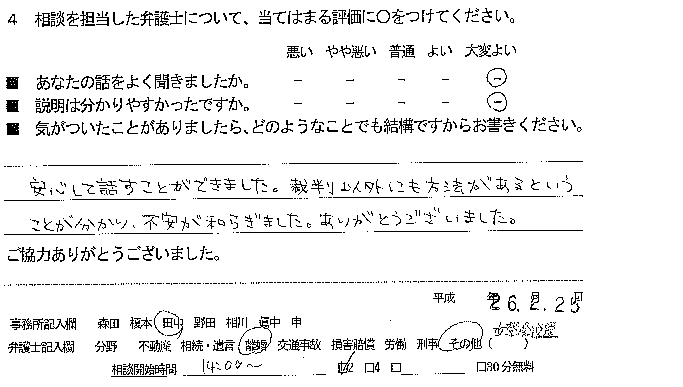 4 相談を担当した弁護士について、当てはまる評価に〇をつけてください。
悪い やや悪い 普通 よい 大変よい
■ あなたの話をよく聞きましたか。 － － － － －
■ 説明は分かりやすかったですか。 － － － － －
■ 気がついたことがありましたら、どのようなことでも結構ですからお書きください。
安心して話すことができました。裁判以外にも方法があるという
ことが分かり、不安が和らぎました。ありがとうございました。
ご協力ありがとうございました。
平成 26.2.25
事務所記入欄 森田 榎本 田中 野田 相川 申
弁護士記入欄 分野 不動産 相続・遺言 離婚 交通事故 損害賠償 労働 刑事 その他（ ）
相談開始時間 14:00〜 □2 □4 □ □30分無料